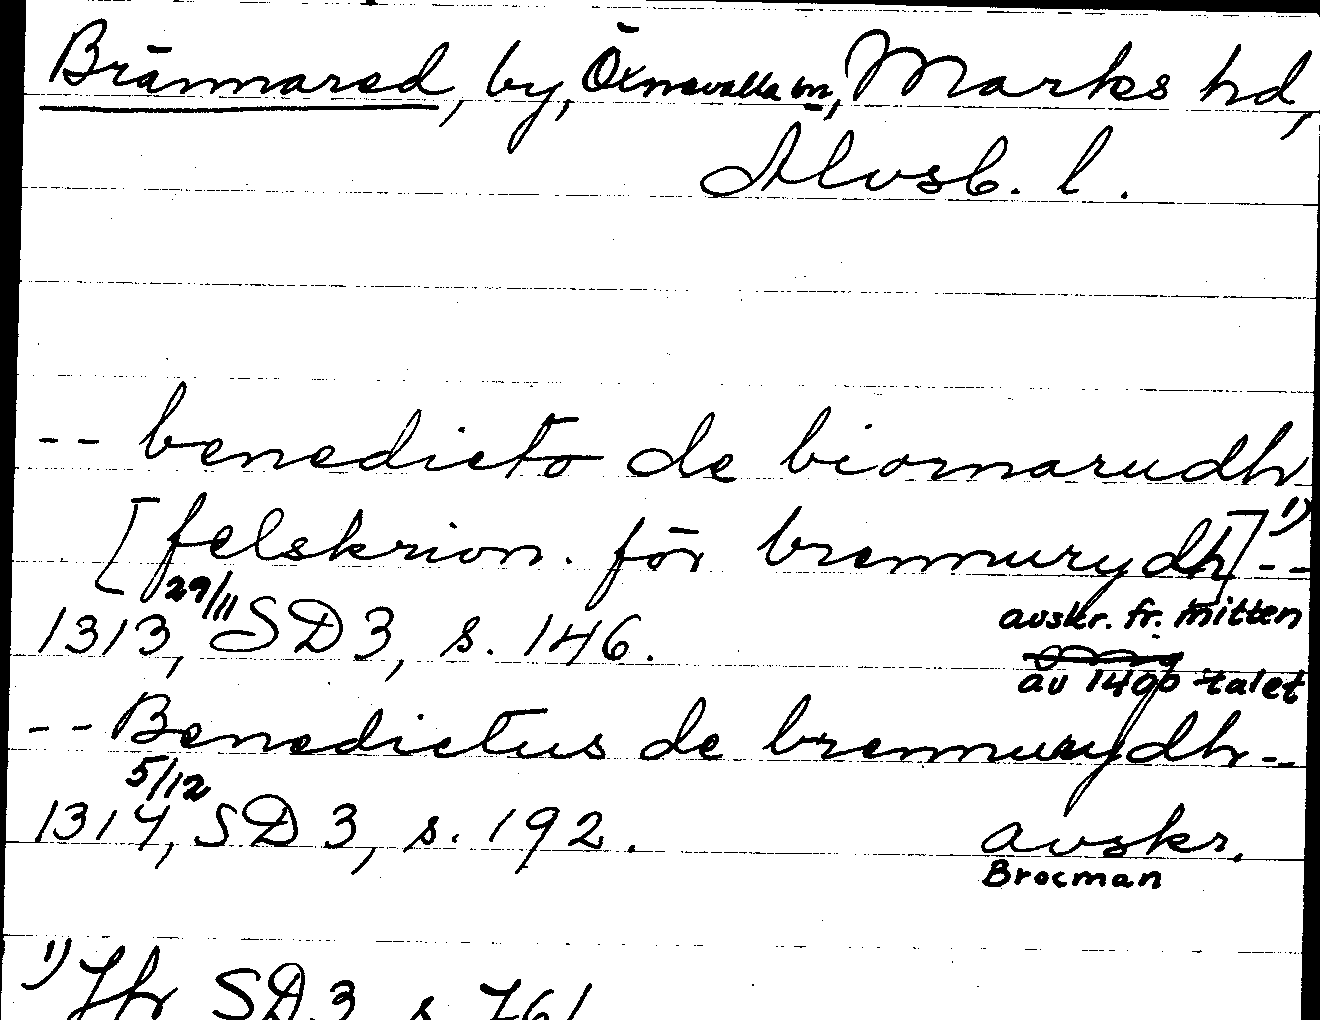 Brännared, by, Öxnevalla sn, Marks hd,
Älvsb. l.
-- benedicto de biornarudh
[felskrivn. för brennurydh]1) --
29/11
1313, SD 3, s. 146.
avskr. fr. mitten
av 1400-talet
-- Benedictus de brennurydh --
5/12
1314, SD 3, s. 192.
avskr.
Brocman
1) Jfr SD 3 s. 761